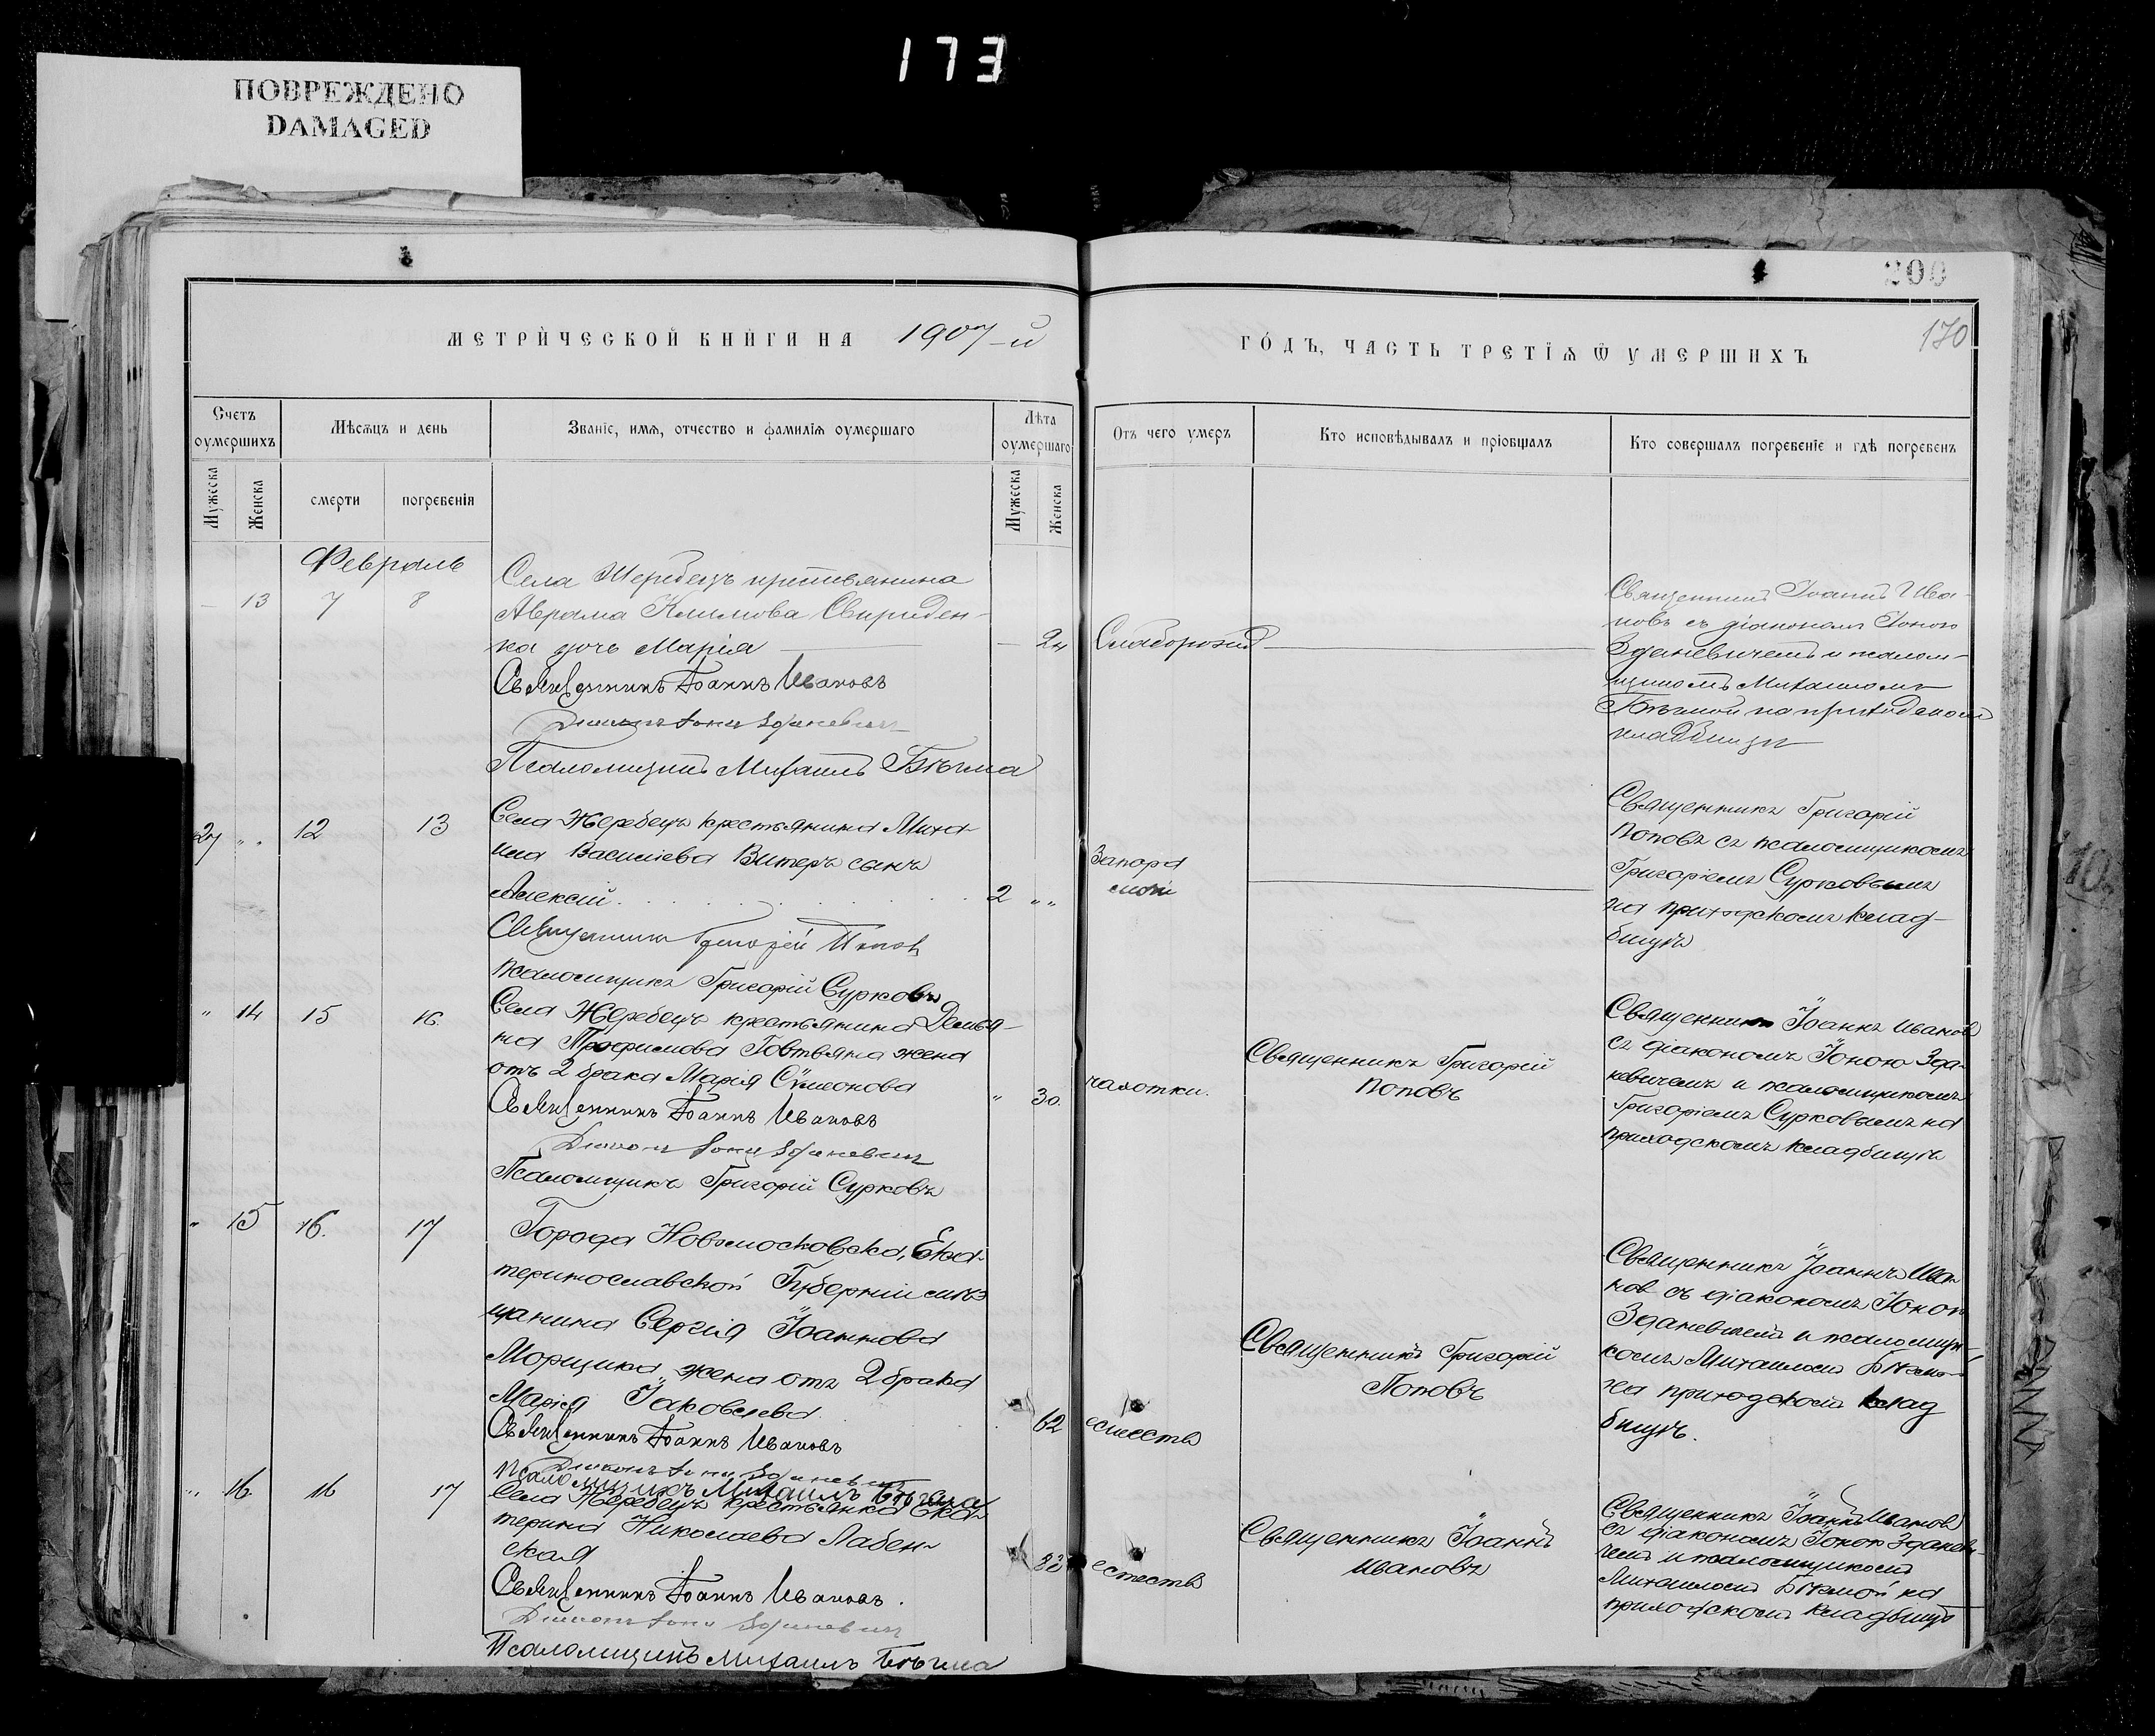 173
ПОВРЕЖДЕНО
DAMAGED
200
170
МЕТРИЧЕСКОЙ КНИГИ НА 1907-й
ГОДЪ, ЧАСТЬ ТРЕТІѦ Ѿ УМЕРШИХЪ
Счетъ оумершихъ
Мѣсѧцъ и день
Званіе, имѧ, отчество и фамиліѧ оумершаго
Лѣта оумершаго
Отъ чего умеръ
Кто исповѣдывалъ и пріобщалъ
Кто совершалъ погребеніе и гдѣ погребенъ
Мужеска
Женска
смерти
погребенія
Мужеска
Женска
Февраль
13 7 8
Села Жеребецъ крестьянина
Аврама Климова Свириден-
ка дочь Марія
Священникъ Іоаннъ Ивановъ
Діаконъ Іона Зданевичъ
Псаломщикъ Михаилъ Бѣгма
Священникъ Іоаннъ Ива-
новъ съ діакономъ Іоною
Зданевичемъ и псалом-
щикомъ Михаиломъ
Бѣгмой на приходском
кладбищѣ
27 „ 12 13
Села Жеребецъ крестьянина Миха-
ила Василіева Витеръ сынъ
Алексій
2 „
Запора
мочи
Священникъ Григорій Попов
Псаломщикъ Григорій Сурковъ
Священникъ Григорій
Поповъ съ псаломщикомъ
Григоріемъ Сурковымъ
на приходскомъ клад-
бищѣ
„ 14 15 16.
Села Жеребецъ крестьянина Демья-
на Трофимова Говтвяна жена
отъ 2 брака Марія Сѵмеонова
„ 30.
чахотки.
Священникъ Іоаннъ Ивановъ
Діаконъ Іона Зданевичъ
Псаломщикъ Григорій Сурковъ
Священникъ Григорій
Поповъ
Священникъ Іоаннъ Иванов
съ діакономъ Іоною Зда-
невичемъ и псаломщикомъ
Григоріемъ Сурковымъ на
приходскомъ кладбищѣ
„ 15 16. 17
Города Новомосковска, Ека-
теринославской Губерніи мѣ
щанина Сергія Іоаннова
Морщина жена отъ 2 брака
Марія Іаковлева
62
Священникъ Іоаннъ Ивановъ
Діаконъ Іона Зданевичъ
Псаломщикъ Михаилъ Бѣгма
Священникъ Григорій
Поповъ
Священникъ Іоаннъ Ива
нов съ діакономъ Іоною
Зданевичемъ и псаломщи-
комъ Михаиломъ Бѣгмой
на приходскомъ клад
бищѣ.
„ 16. 16 17
Села Жеребецъ крестьянка Ека-
терина Николаева Лабен-
ская
естеств
Священникъ Іоаннъ Ивановъ.
Діаконъ Іона Зданевичъ
Псаломщикъ Михаилъ Бѣгма
Священникъ Іоаннъ
Ивановъ
Священникъ Іоаннъ Иванов
съ діакономъ Іоною Зданеви-
чемъ и псаломщикомъ
Михаиломъ Бѣгмой на
приходскомъ кладбищѣ